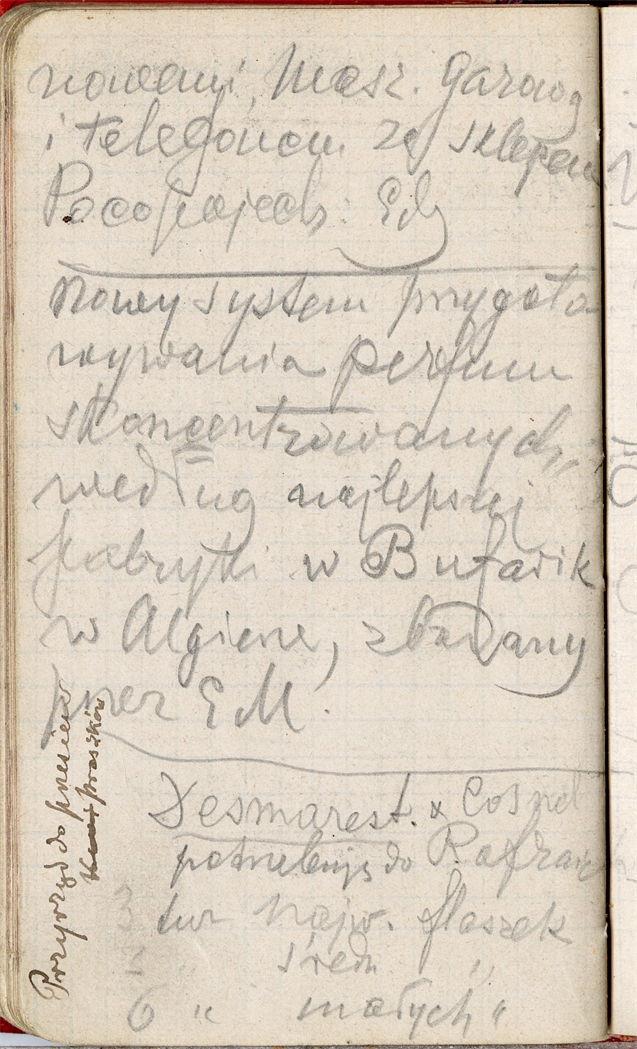 nowemi, Masz. Garową
i telefonem ze sklepem
nowy system przygoto
wywania perfum
skoncentrowanych,
według najlepszej
fabryki w Bufarik
w Algierze, zbadany
przez EM.
Desmarest. x
potrzebuje do
tuz najw. flaszek
2 " średn "
6 " małych "
Przyrząd do
proszków